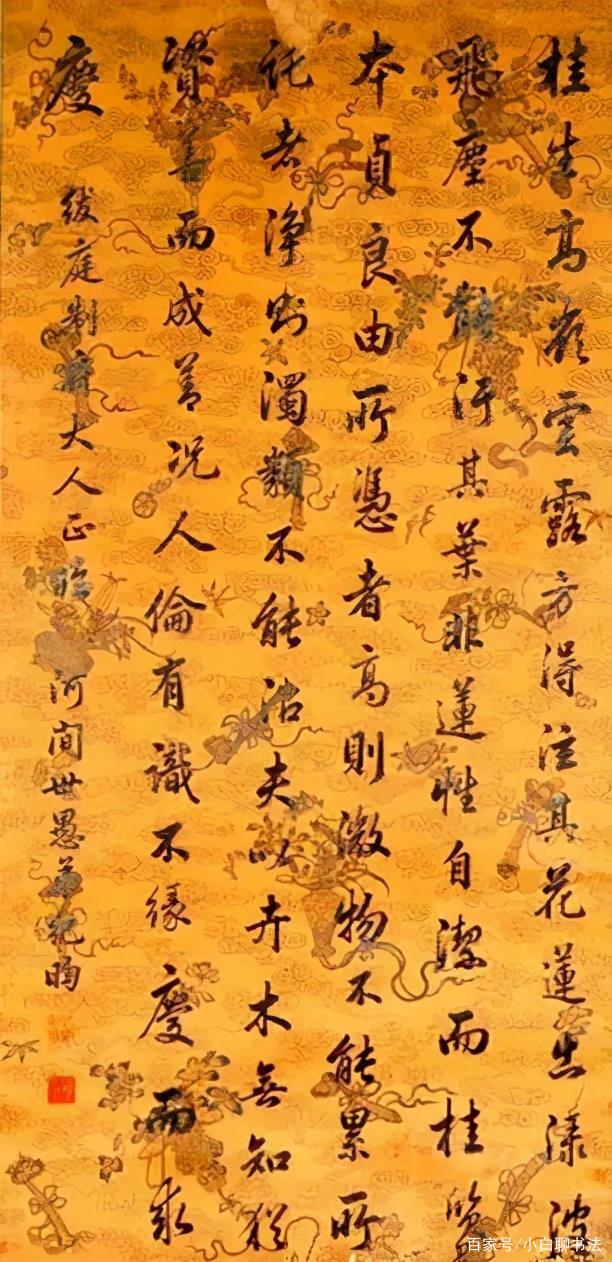 桂生高嶺雲露方得泫其花蓮出淥波
飛塵不能汙其葉非蓮性自潔而桂質
本貞良由所憑者高則微物不能累所
託者淨則濁類不能沾夫以卉木無知猶
資善而成善況人倫有識不緣慶而求
慶
紱庭制府大人正臨 河間世愚弟紀昀
百家号/小白聊书法